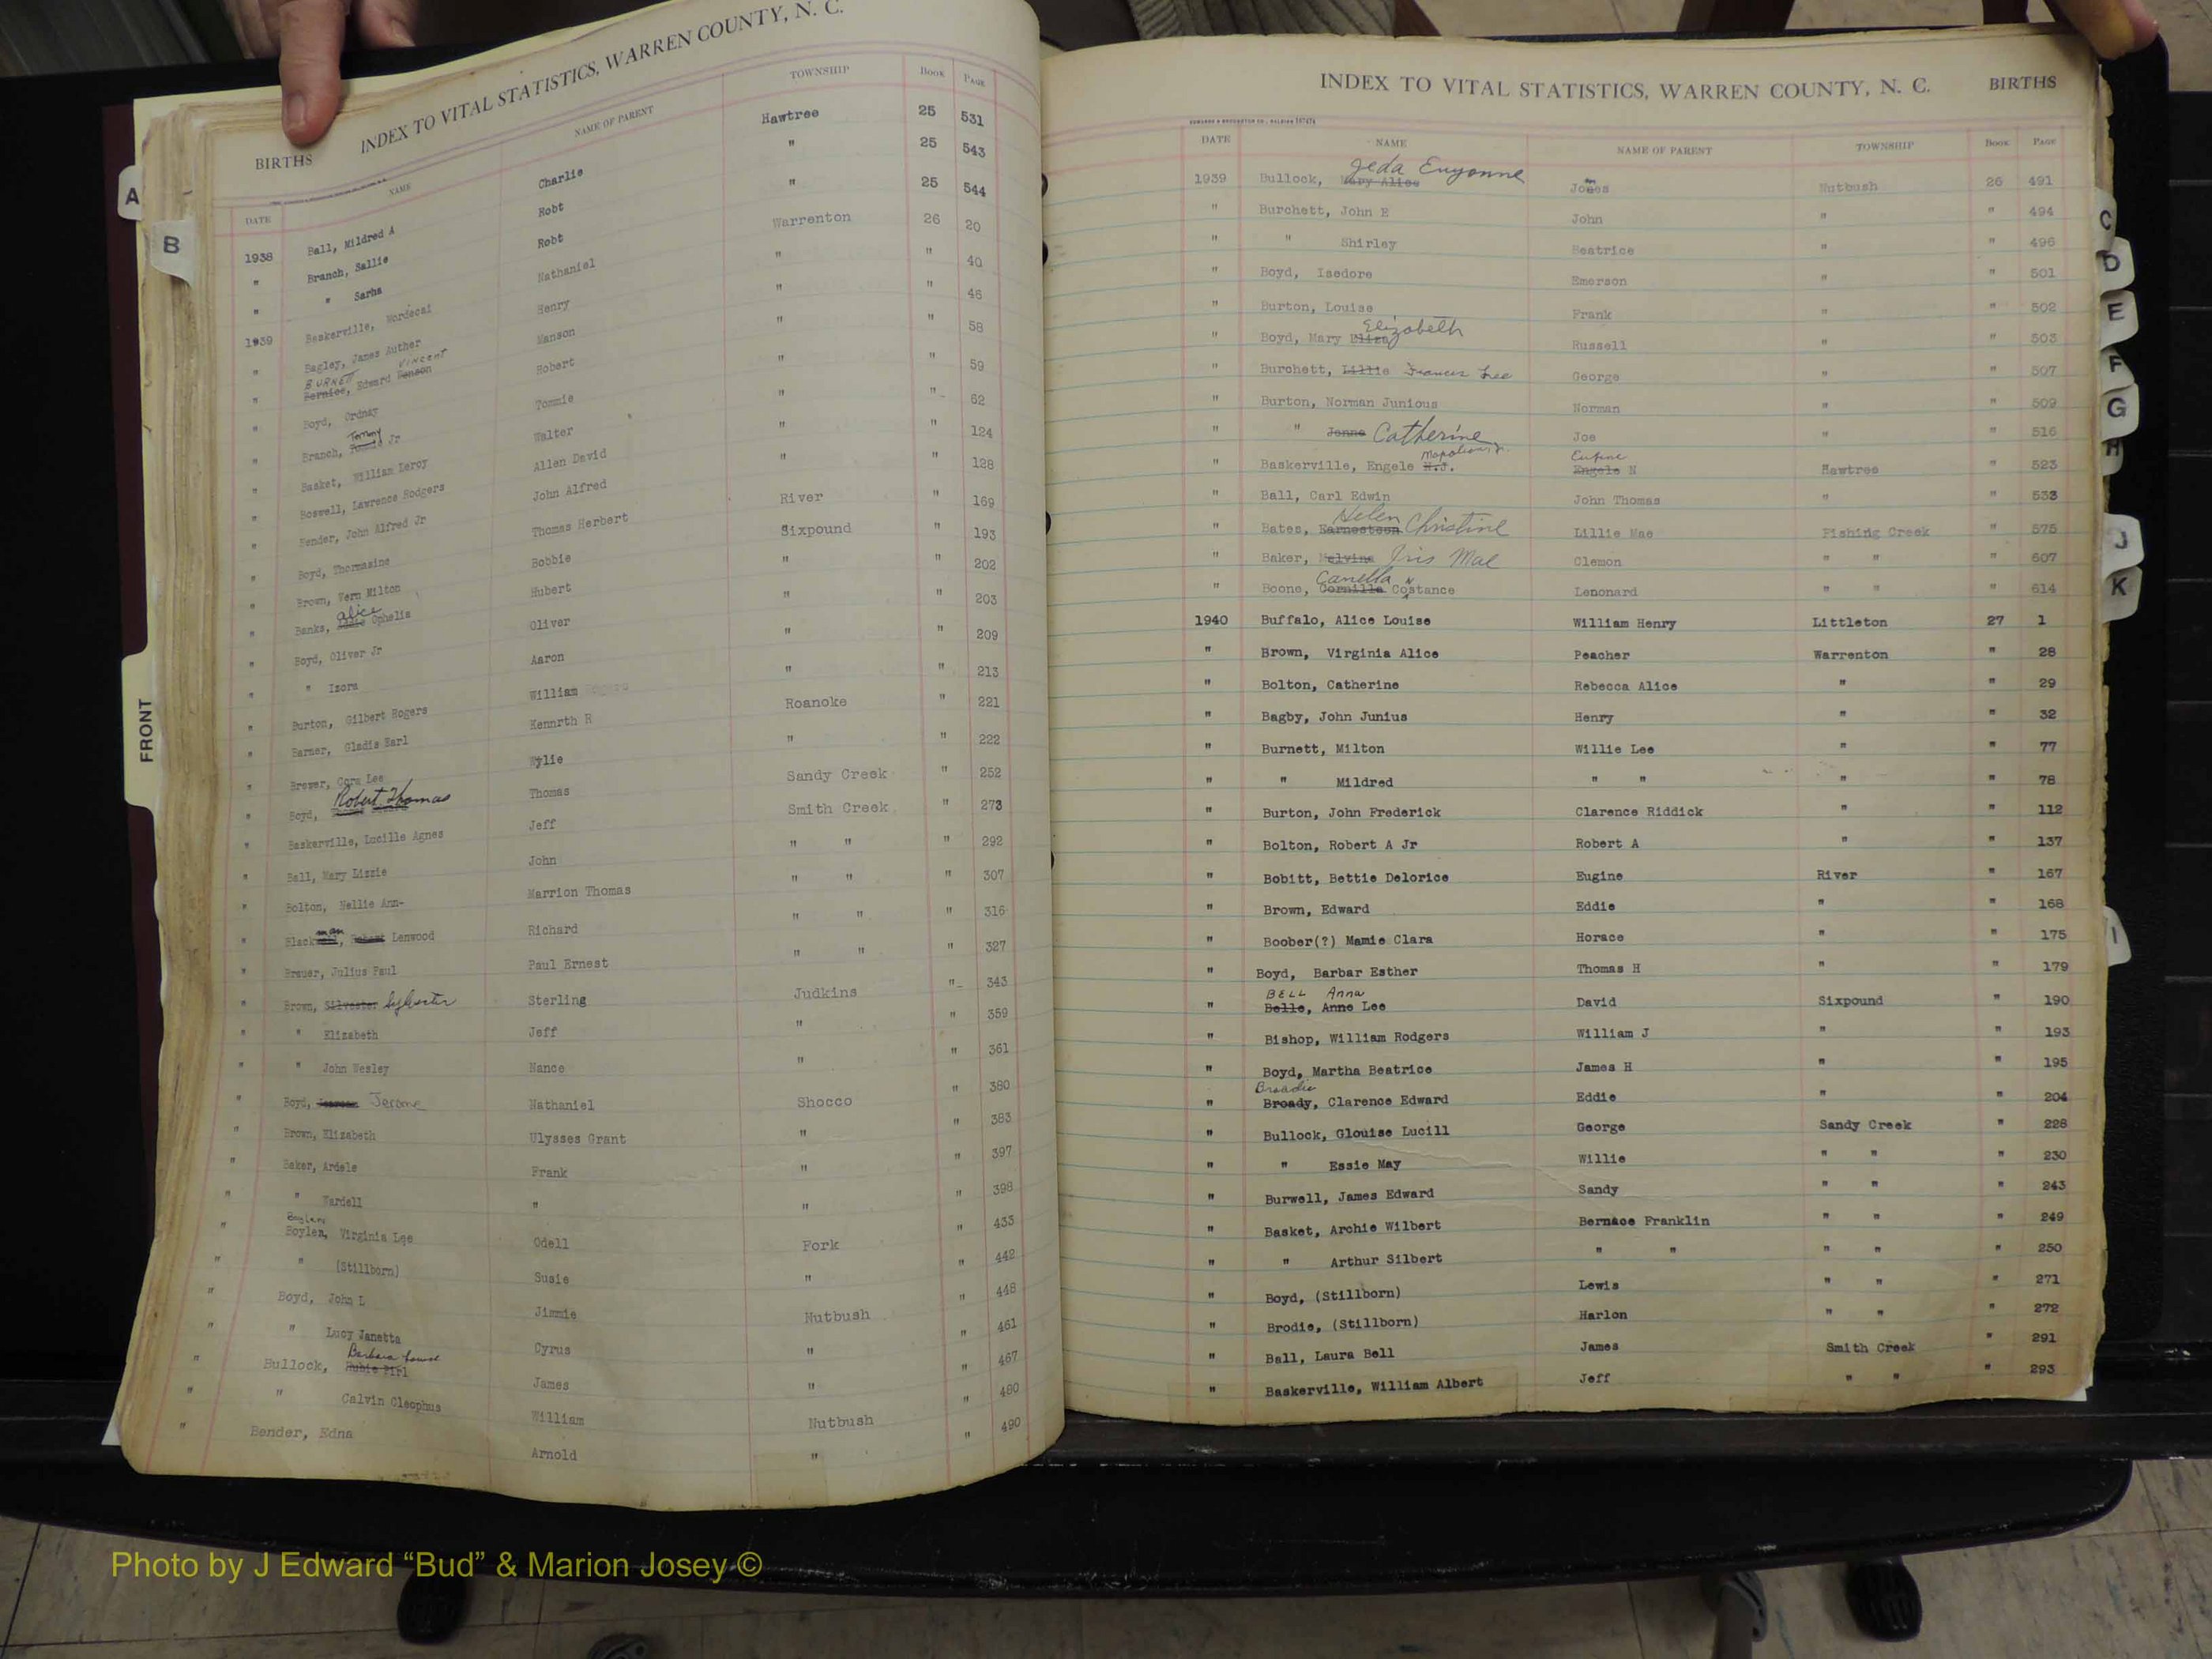 INDEX TO VITAL STATISTICS, WARREN COUNTY, N. C.
BIRTHS
DATE NAME NAME OF PARENT TOWNSHIP BOOK PAGE
1938 Ball, Mildred A Charlie Hawtree 25 531
" Branch, Sallie Robt " 25 543
" " Sarha Robt " 25 544
1939 Baskerville, Mordecai Nathaniel Warrenton 26 20
" Bagley, James Auther Henry " " 40
VINCENT
" Bernice, Edward Benson Manson " " 46
" Boyd, Ordnay Robert " " 58
Tommy
" Branch, Jr Tommie " " 59
" Basket, William Leroy Walter " " 62
" Boswell, Lawrence Rodgers Allen David " " 124
" Bender, John Alfred Jr John Alfred " " 128
" Boyd, Thormazine Thomas Herbert River " 169
" Brown, Vern Milton Bobbie Sixpound " 193
alice
" Banks, Ophelia Hubert " " 202
" Boyd, Oliver Jr Oliver " " 203
" " Izora Aaron " " 209
" Burton, Gilbert Rogers William " " 213
" Barner, Gladis Earl Kennrth R Roanoke " 221
" Brewer, Cora Lee Wylie " " 222
" Boyd, Robert Thomas Thomas Sandy Creek " 252
" Baskerville, Lucille Agnes Jeff Smith Creek " 273
" Ball, Mary Lizzie John " " " 292
" Bolton, Nellie Ann- Marrion Thomas " " " 307
" Blackman, Lenwood Richard " " " 316
" Breuer, Julius Paul Paul Ernest " " " 327
" Brown, Silvester Sylvester Sterling Judkins " 343
" " Elizabeth Jeff " " 359
" " John Wesley Nance " " 361
" Boyd, Jerome Nathaniel Shocco " 380
" Brown, Elizabeth Ulysses Grant " " 383
" Baker, Ardele Frank " " 397
" " Wardell " " " 398
" Boylen, Virginia Lee Odell Fork " 433
" " (Stillborn) Susie " " 442
" Boyd, John L Jimmie Nutbush " 448
" " Lucy Janetta Cyrus " " 461
Barbara Louise
" Bullock, Rubie Pirl James " " 467
" " Calvin Cleophus William Nutbush " 480
" Bender, Edna Arnold " " 490
A
B
FRONT
INDEX TO VITAL STATISTICS, WARREN COUNTY, N. C. BIRTHS
DATE NAME NAME OF PARENT TOWNSHIP BOOK PAGE
Jeda Euyonne
1939 Bullock, Mary Alice Jones Nutbush 26 491
" Burchett, John E John " " 494
" " Shirley Beatrice " " 496
" Boyd, Isedore Emerson " " 501
" Burton, Louise Frank " " 502
Elizabeth
" Boyd, Mary Eliza Russell " " 503
" Burchett, Lillie Frances Lee George " " 507
" Burton, Norman Junious Norman " " 509
" " Catherine Joe " " 516
Eugine
" Baskerville, Engele N.J. Engele N Hawtree " 523
" Ball, Carl Edwin John Thomas " " 533
Helen
" Bates, Earnesteen Christine Lillie Mae Fishing Creek " 575
" Baker, Malvina Iris Mae Clemon " " " 607
Canella n
" Boone, Cornilla Costance Lenonard " " " 614
1940 Buffalo, Alice Louise William Henry Littleton 27 1
" Brown, Virginia Alice Peacher Warrenton " 28
" Bolton, Catherine Rebecca Alice " " 29
" Bagby, John Junius Henry " " 32
" Burnett, Milton Willie Lee " " 77
" " Mildred " " " " 78
" Burton, John Frederick Clarence Riddick " " 112
" Bolton, Robert A Jr Robert A " " 137
" Bobitt, Bettie Delorice Eugine River " 167
" Brown, Edward Eddie " " 168
" Boober(?) Mamie Clara Horace " " 175
" Boyd, Barbar Esther Thomas H " " 179
BELL Anna
" Belle, Anne Lee David Sixpound " 190
" Bishop, William Rodgers William J " " 193
" Boyd, Martha Beatrice James H " " 195
Broadie
" Broady, Clarence Edward Eddie " " 204
" Bullock, Glouise Lucill George Sandy Creek " 228
" " Essie May Willie " " " 230
" Burwell, James Edward Sandy " " " 243
" Basket, Archie Wilbert Bernace Franklin " " " 249
" " Arthur Silbert " " " " " 250
" Boyd, (Stillborn) Lewis " " " 271
" Brodie, (Stillborn) Harlon " " " 272
" Ball, Laura Bell James Smith Creek " 291
" Baskerville, William Albert Jeff " " " 293
C
D
E
F
G
H
J
K
I
Photo by J Edward “Bud” & Marion Josey ©